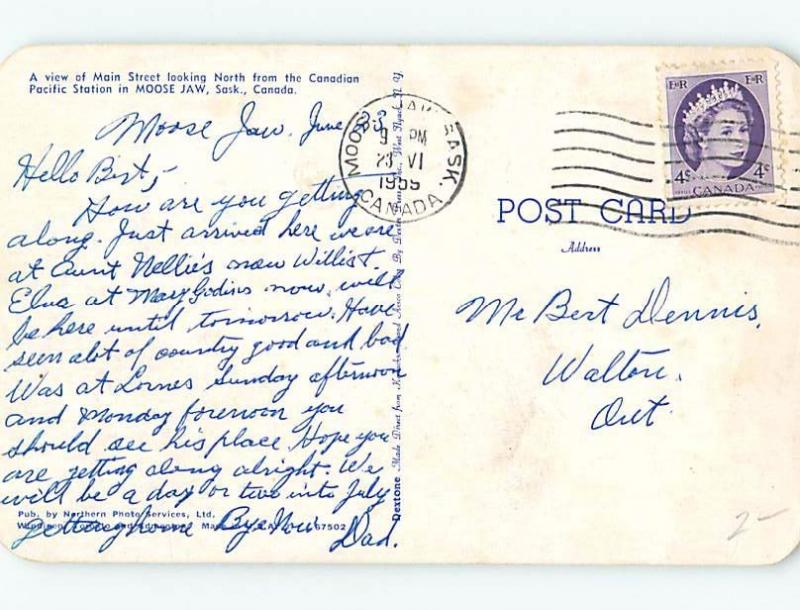 A view of Main Street looking North from the Canadian
Pacific Station in MOOSE JAW, Sask., Canada.
Moose Jaw. June 23
Hello Bert,
How are you getting
along. Just arrived here we are
at Aunt Nellie's now Willis &
Elva at Mary Godins now, will
be here until tomorrow. Have
seen alot of country good and bad
Was at Lornes Sunday afternoon
and Monday forenoon you
should see his place Hope you
are getting along alright. We
will be a day or two into July
getting home Bye Now
Dad.
Pub. by Northern Photo Services, Ltd.
67502
Dextone Made Direct from
West Nyack, N. Y.
MOOSE JAW SASK.
9 PM
23 VI
1959
CANADA
E II R E II R
4c 4c
POSTES CANADA POSTAGE
POST CARD
Address
Mr Bert Dennis,
Walton.
Ont.
2-